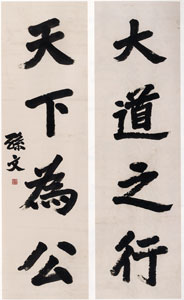 大道之行
天下為公
孫文